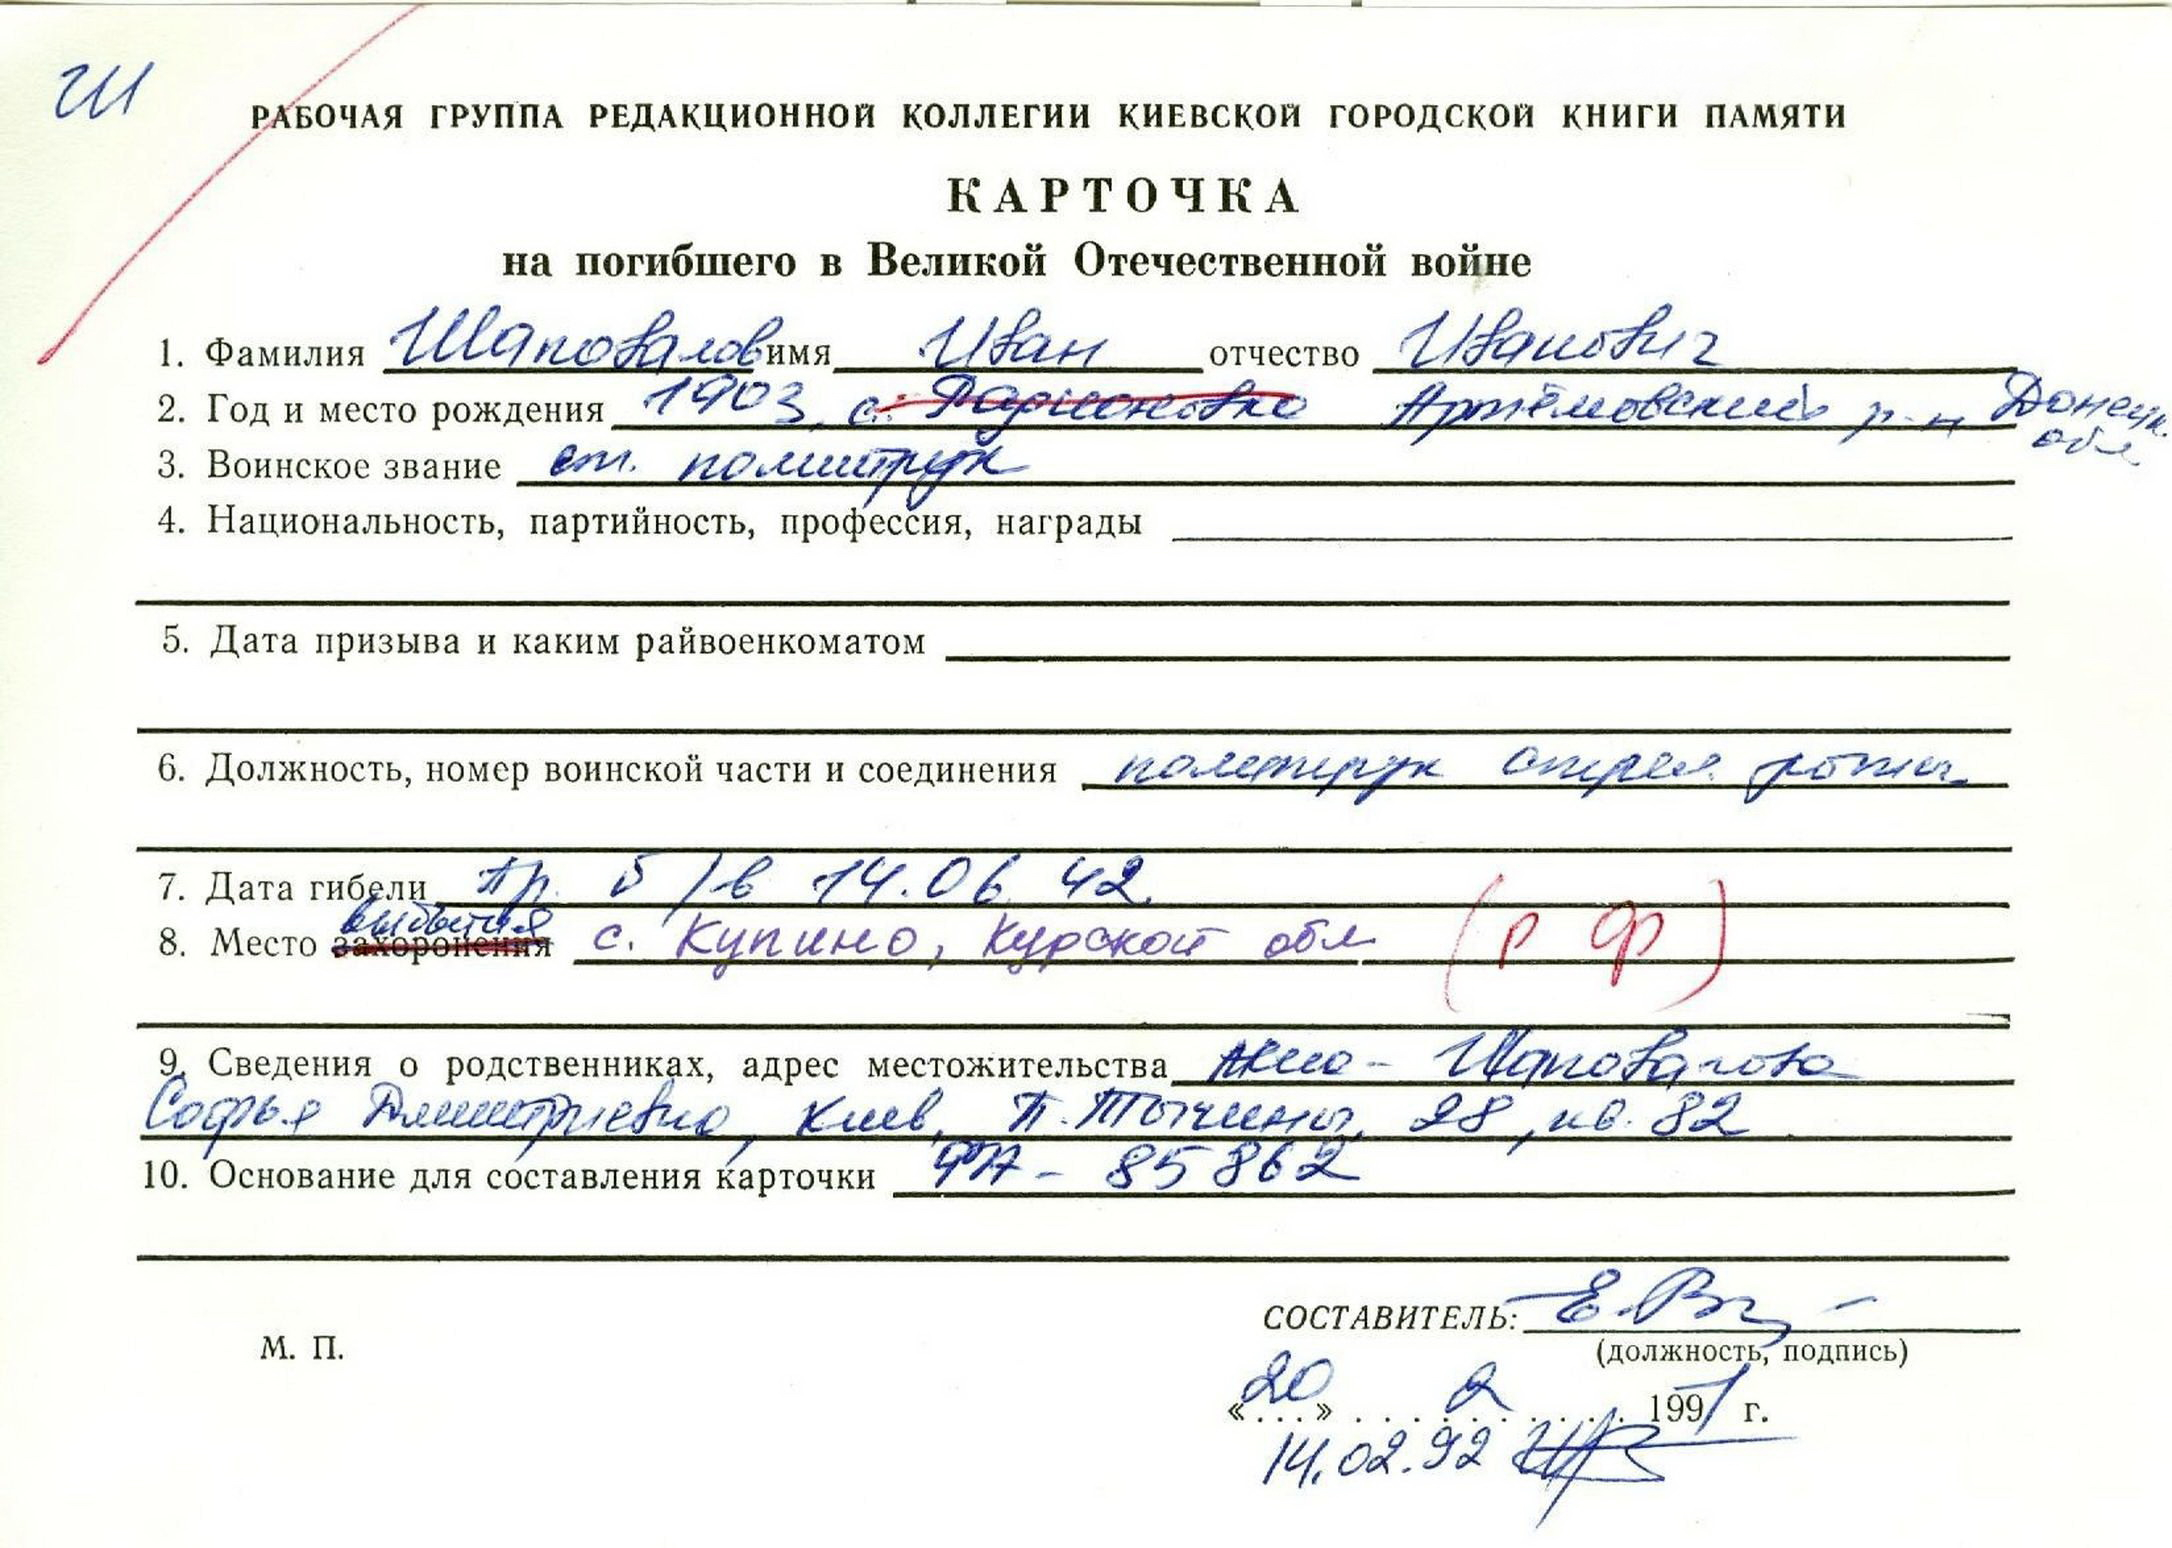 Ш
РАБОЧАЯ ГРУППА РЕДАКЦИОННОЙ КОЛЛЕГИИ КИЕВСКОЙ ГОРОДСКОЙ КНИГИ ПАМЯТИ
КАРТОЧКА
на погибшего в Великой Отечественной войне
1. Фамилия Шаповалов имя Иван отчество Иванович
2. Год и место рождения 1903, с. Артёмовский р-н Донецк. обл
3. Воинское звание ст. политрук
4. Национальность, партийность, профессия, награды
5. Дата призыва и каким райвоенкоматом
6. Должность, номер воинской части и соединения политрук стрел. роты
7. Дата гибели Пр. б/в 14.06.42.
выбытия
8. Место захоронения с. Купино, Курской обл (РФ)
9. Сведения о родственниках, адрес местожительства жена - Шаповалова
Софья Дмитриевна, Киев, П. Тычины, 28, кв. 82
10. Основание для составления карточки - 85862
СОСТАВИТЕЛЬ:
М. П.
(должность, подпись)
«20» 2 1991 г.
14.02.92